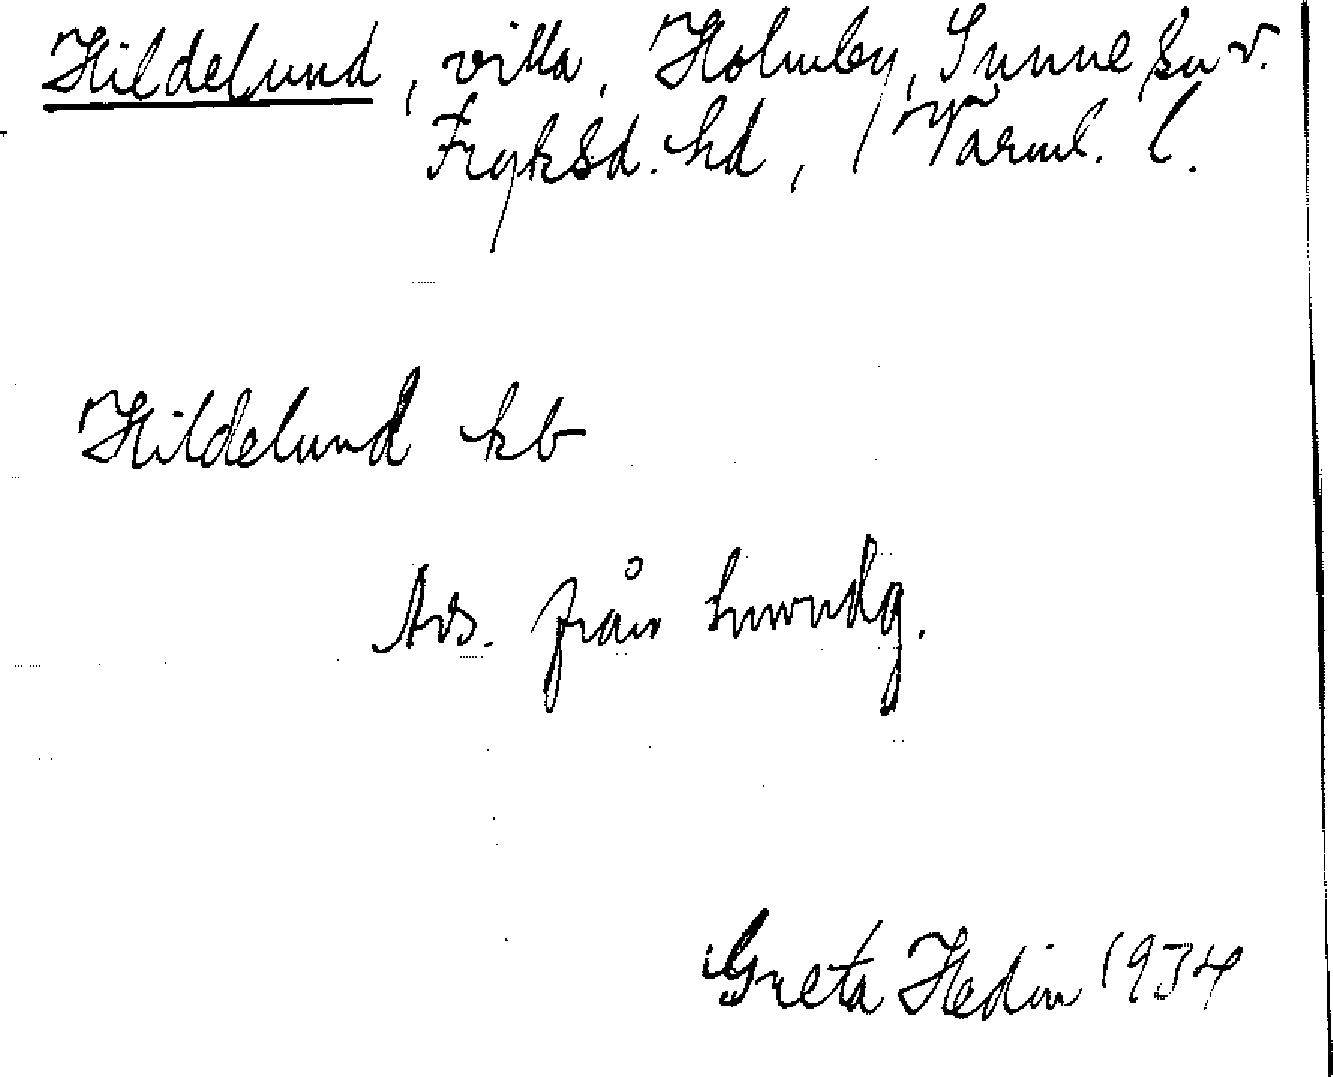 Hildelund, villa, Holmby, Sunne sn v.
Fryksd. hd, Värml. l.
Hildelund kb
Avs. från huvudg.
Greta Hedin 1934